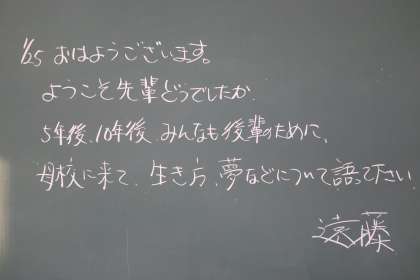 1/25 おはようございます。
ようこそ先輩どうでしたか.
5年後、10年後、みんなも後輩のために、
母校に来て、生き方、夢などについて語って下さい
遠藤